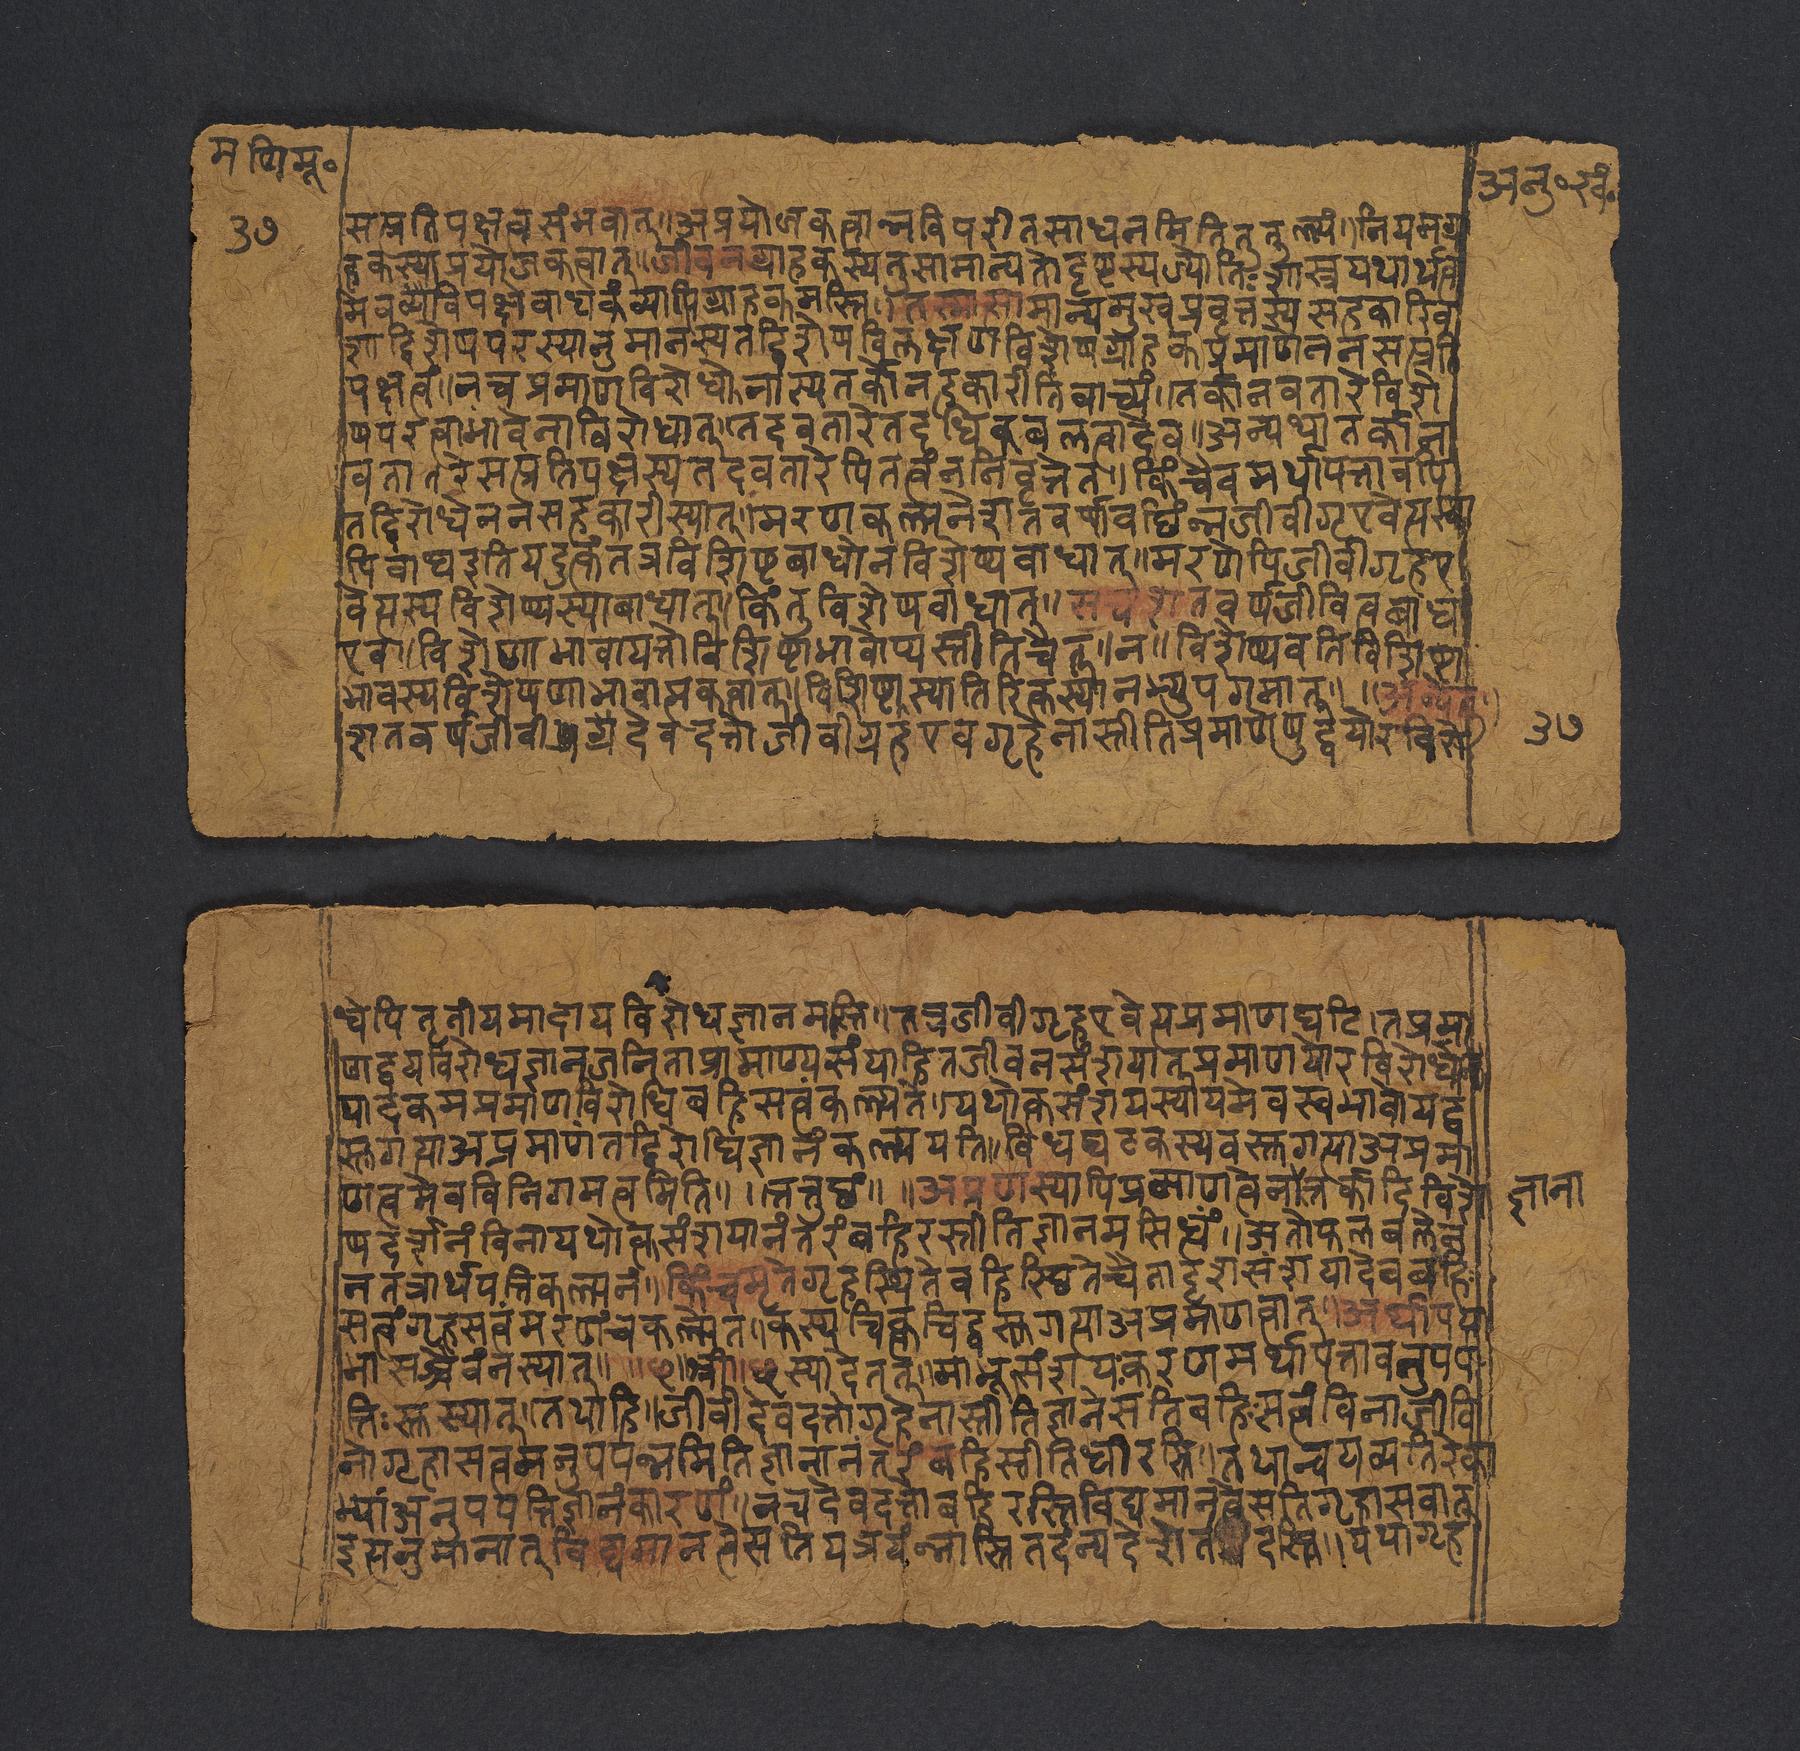 मणिमू॰
अनु॰खं॰
३७
सत्प्रतिपक्षत्वसंभवात्॥अप्रयोजकत्वान्नविपरीतसाधनमितितुतुल्यं॥नियमग्रा
हकस्याप्रयोजकत्वात्॥जीवनग्राहकस्यतुसामान्यतोदृष्टस्यज्योतिःशास्त्रयथार्थत्व
मेवव्याविपक्षेबाधकंव्याप्तिग्राहकमस्ति॥तस्मात्सामान्यमुखप्रवृत्तस्यसहकारिव
शाद्विशेषपरस्यानुमानस्यतद्विशेषविलक्षणविशेषग्राहकप्रमाणेननसत्प्रति
पक्षत्वं॥नचप्रमाणविरोधोनास्यतर्कोनहकारीतिवाच्यं॥तर्कानवतारेविशे
षपरत्वाभावेनाविरोधात्॥तदवतारेतदधिकबलत्वादेव॥अन्यथातर्कान
वतातरेसत्प्रतिपक्षस्यतदवतारेपितत्वंननिवर्त्तेत॥किंचैवमर्थापत्तावपि
तद्विरोधेननसहकारीस्यात्॥मरणकल्पनेशतवर्षावछिंन्नजीवीगृहएवेत्यस्या
पिबाधइतियदुक्तंतत्रविशिष्टबाधोनविशेष्यबाधात्॥मरणेपिजीवीगृहए
वेत्यस्यविशेष्यस्याबाधात्॥किंतुविशेषबाधात्॥सचशतवर्षजीवित्वबाध
एव॥विशेषणाभावायत्तोविशिष्टाभावोप्यस्तीतिचेत्॥न॥विशेष्यवतिविशिष्टा
भावस्यविशेषणाभावात्मकत्वात्॥विशिष्टस्यातिरिक्तस्यानभ्युपगमात्॥॥अथैत
शतवर्षजीवीदेवदत्तोजीवीगृहएवगृहेनास्तीतिप्रमाणेषुद्वयोरविरो
३७
धेपितृतीयमादायविरोधज्ञानमस्ति॥तत्रजीवीगृहएवेत्यप्रमाणघटि।तप्रमा
णद्वयविरोधज्ञानजनिताप्रामाण्यसंयाहितजीवनसंशयात्प्रमाणयोरविरोधो
पादकमप्रमाणविरोधिबहिसत्वंकल्प्यते॥यथोक्तसंशयस्यायमेवस्वभावोयद्व
स्तुगत्याअप्रमाणंतद्विरोधिज्ञानंकल्पयति॥विधघटकस्यवस्तुगत्याअप्रमा
णत्वमेवविनिगमत्वमिति॥॥तत्तुछं॥॥अप्रणस्यापिप्रमाणत्वेनोर्त्तर्कादिविशे
ज्ञाना
षदर्शनंविनायथोक्तसंशयानंतरंबहिरस्तीतिज्ञानमसिद्धं॥अतोफलबलेन
नतत्रार्थपत्तिकल्पनं॥किंचमृतेगृहस्थितेबहिस्छितेचैतादृशसंशयादेवबहिः
सत्वंगृहसत्वंमरणंचकल्प्येत॥कस्यचित्क्वचिद्वस्तुगत्याअप्रमाणत्वात्॥अर्थापत्या
भासश्चैवंनस्यात्॥॥छ॥श्री॥छ॥स्यादेतत्॥माभूसंशयकरणमर्थापत्तावनुपप
त्तिःस्तुस्यात्॥तथाहि॥जीवीदेवदत्तोगृहेनास्तीतिज्ञानेसतिबहिःसत्वंविनाजीवि
नोगृहासत्वमनुपपन्नमितिज्ञानानंतरंबहिस्तीतिधीरस्ति॥तथान्वयव्यतिरेका
भ्यांअनुपपत्तिज्ञानंकारणं॥नचदेवदत्तोबहिरस्तिविद्यमानत्वेसतिगृहासत्वात्
इत्यनुमानात्विद्यमानत्वेसतियत्रयंन्नास्तितदन्यदेशेतदस्ति॥यथागृह